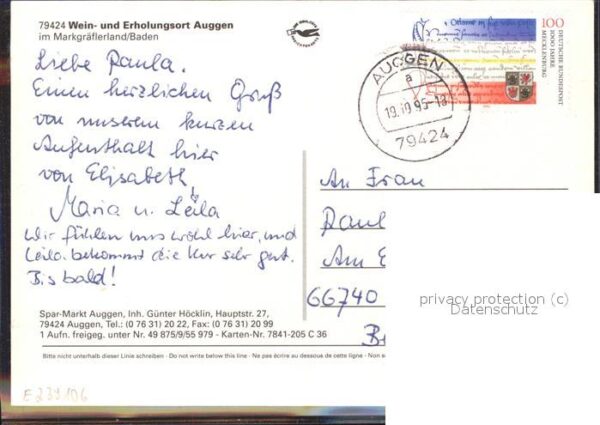 79424 Wein- und Erholungsort Auggen
im Markgräflerland/Baden
Liebe Paula.
Einen herzlichen Gruß
von unserem kurzen
Aufenthalt hier
von Elisabeth,
Maria u. Leila
Wir fühlen uns wohl hier, und
Leila bekommt die Kur sehr gut.
Bis bald!
Spar-Markt Auggen, Inh. Günter Höcklin, Hauptstr. 27,
79424 Auggen, Tel.: (0 76 31) 20 22, Fax: (0 76 31) 20 99
1 Aufn. freigeg. unter Nr. 49 875/9/55 979 - Karten-Nr. 7841-205 C 36
Bitte nicht unterhalb dieser Linie schreiben - Do not write below this line - Ne pas écrire au dessous de cette ligne - Non s
E239106
AUGGEN
a
19.10.95-18
79424
100
DEUTSCHE BUNDESPOST
1000 JAHRE
MECKLENBURG
An Frau
Paul
Am E
66740
privacy protection (c)
Datenschutz